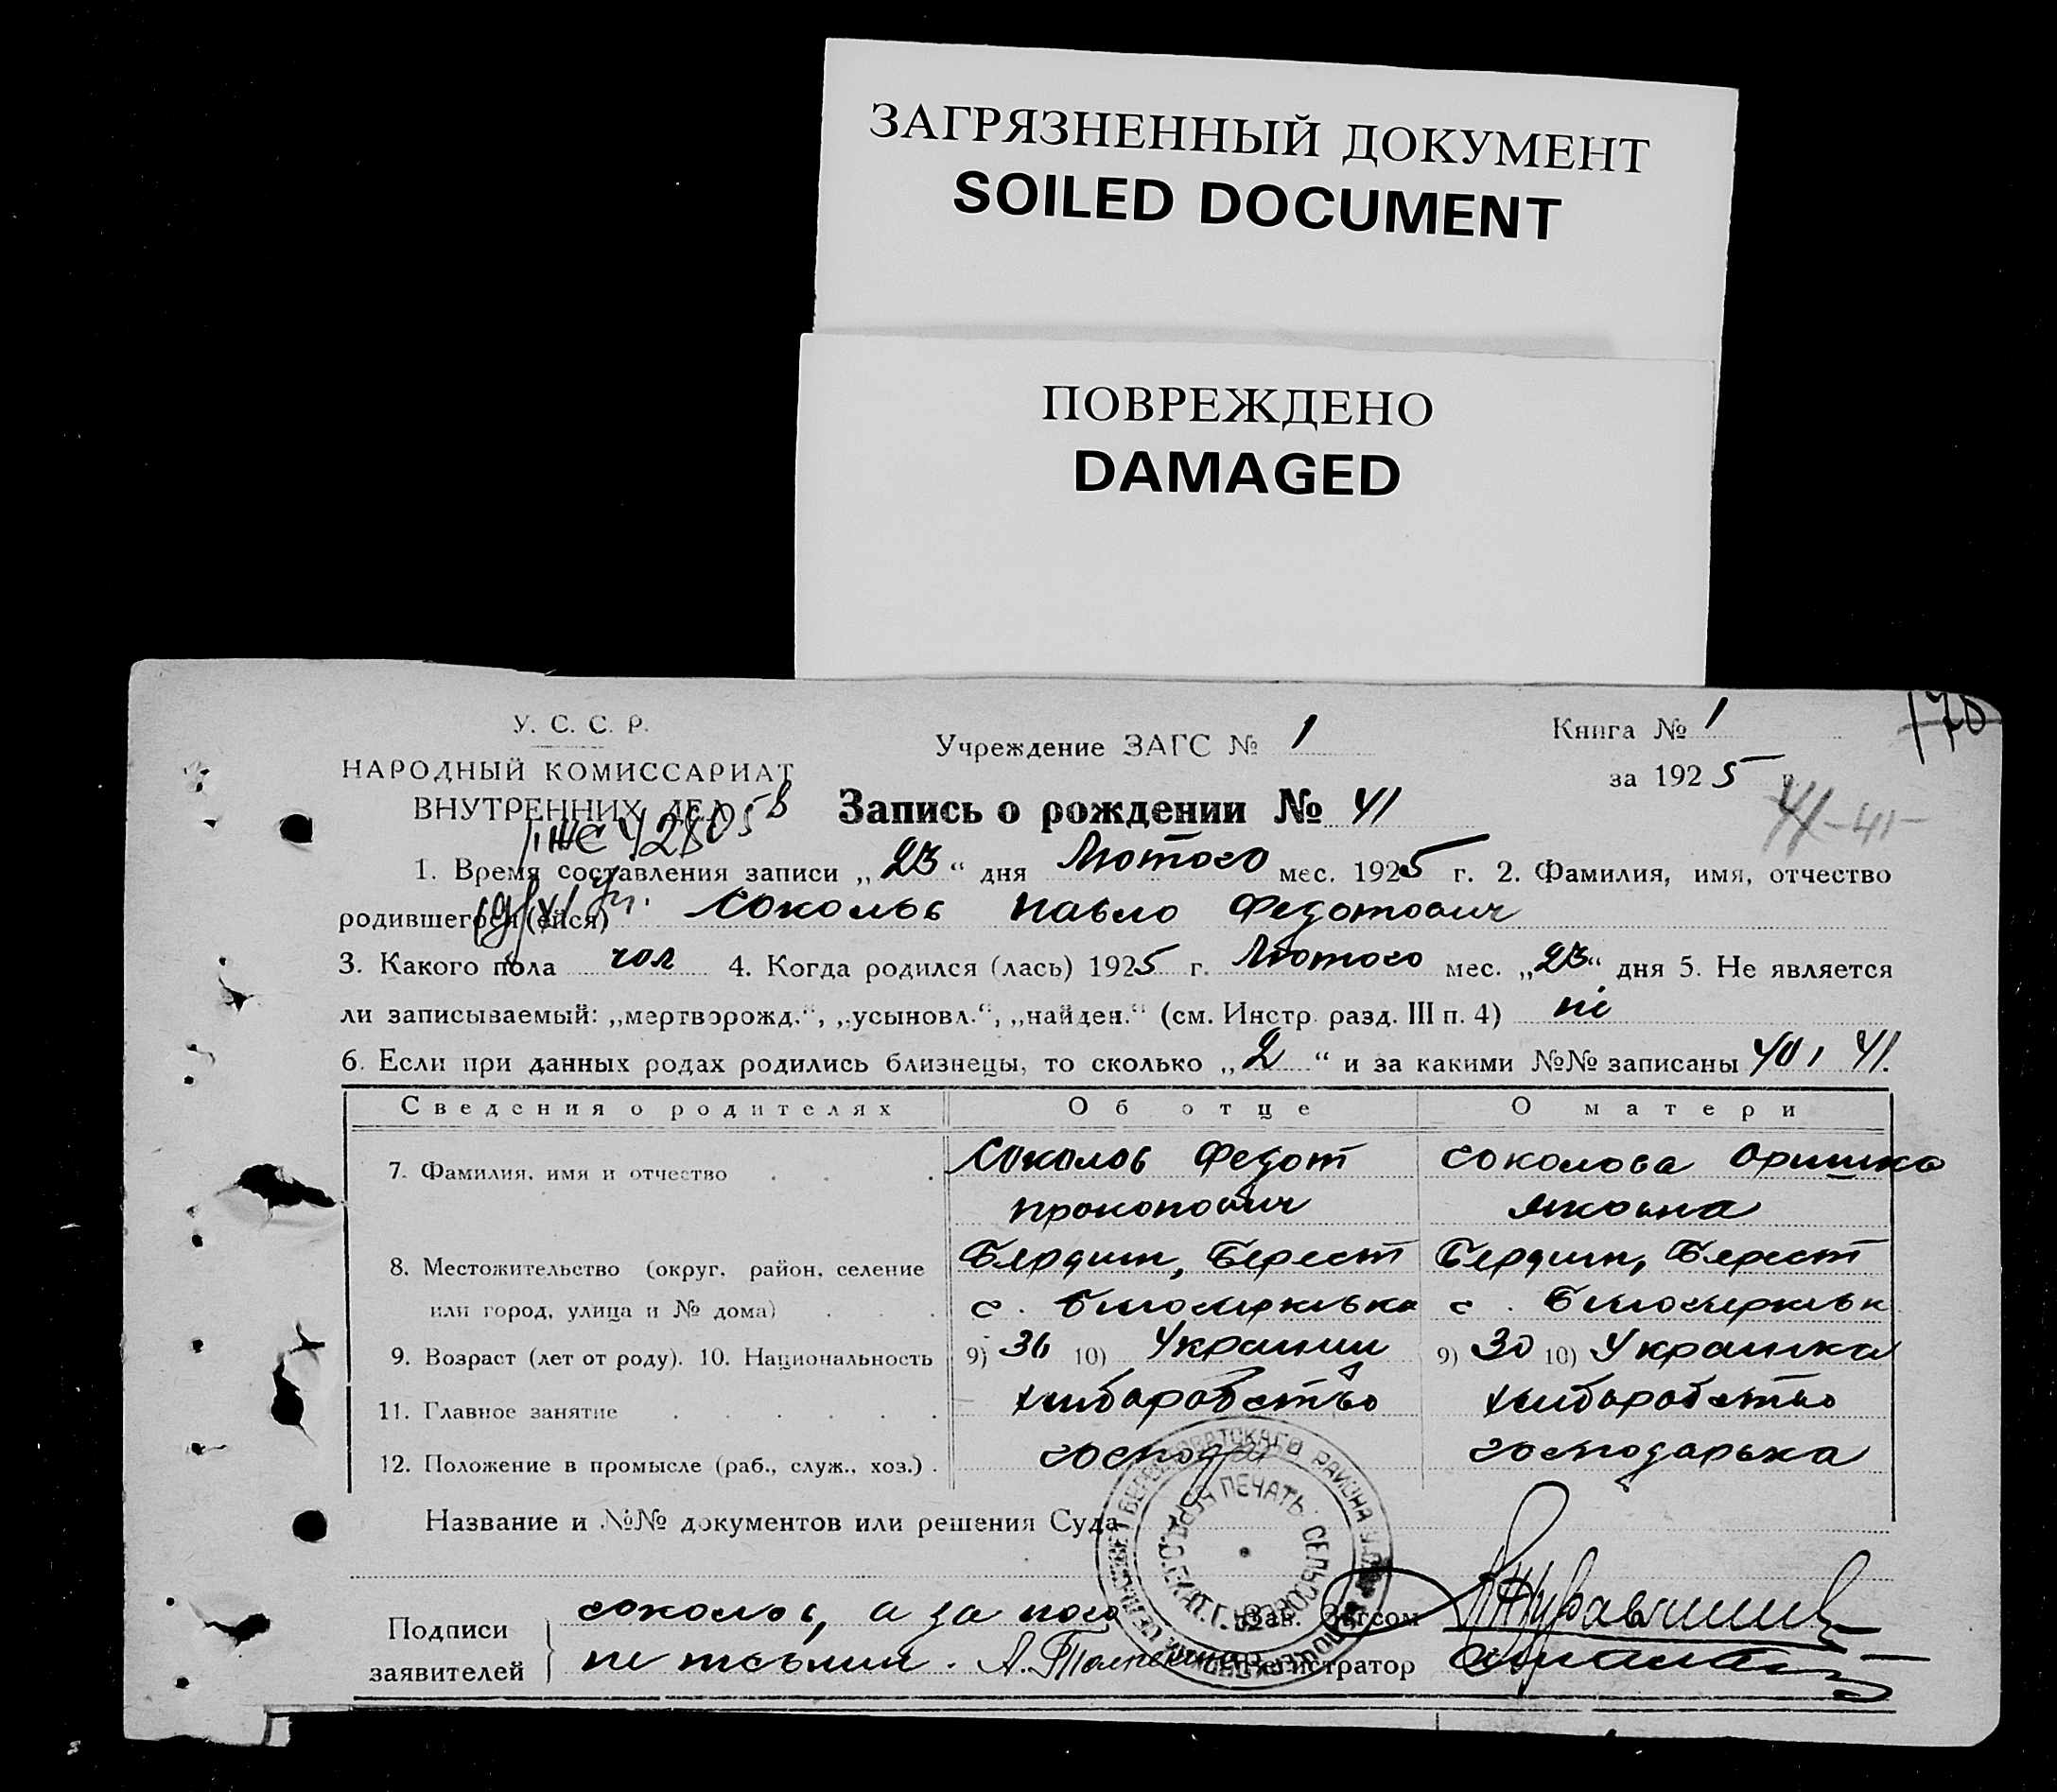 ЗАГРЯЗНЕННЫЙ ДОКУМЕНТ
SOILED DOCUMENT
ПОВРЕЖДЕНО
DAMAGED
У. С. С. Р.
НАРОДНЫЙ КОМИССАРИАТ
ВНУТРЕННИХ ДЕЛ
Учреждение ЗАГС № 1
Книга № 1
за 1925 г.
178
Запись о рождении № 41
41 -41-
1. Время составления записи „23“ дня Лютого мес. 1925 г. 2. Фамилия, имя, отчество
родившегося (ейся) Соколов Павло Федотович
3. Какого пола чол 4. Когда родился (лась) 1925 г. Лютого мес. „23“ дня 5. Не является
ли записываемый: „мертворожд.“, „усыновл.“, „найден.“ (см. Инстр. разд. III п. 4) ні
6. Если при данных родах родились близнецы, то сколько „2“ и за какими №№ записаны 40 і 41.
Сведения о родителях Об отце О матери
7. Фамилия, имя и отчество Соколов Федот Соколова Оришка
Прокопович Яковна
8. Местожительство (округ, район, селение Бердян, Берест Бердян, Берест
или город, улица и № дома) с. Билоцерківка с. Билоцерківк
9. Возраст (лет от роду). 10. Национальность 9) 36 10) Украинц 9) 30 10) Украинка
11. Главное занятие хлиборобство хлиборобство
12. Положение в промысле (раб., служ., хоз.) господар господарька
Название и №№ документов или решения Суда
Подписи заявителей
Соколов, а за його
неписьмен. А.
Зав. Загсом
Регистратор
ПЕЧАТЬ